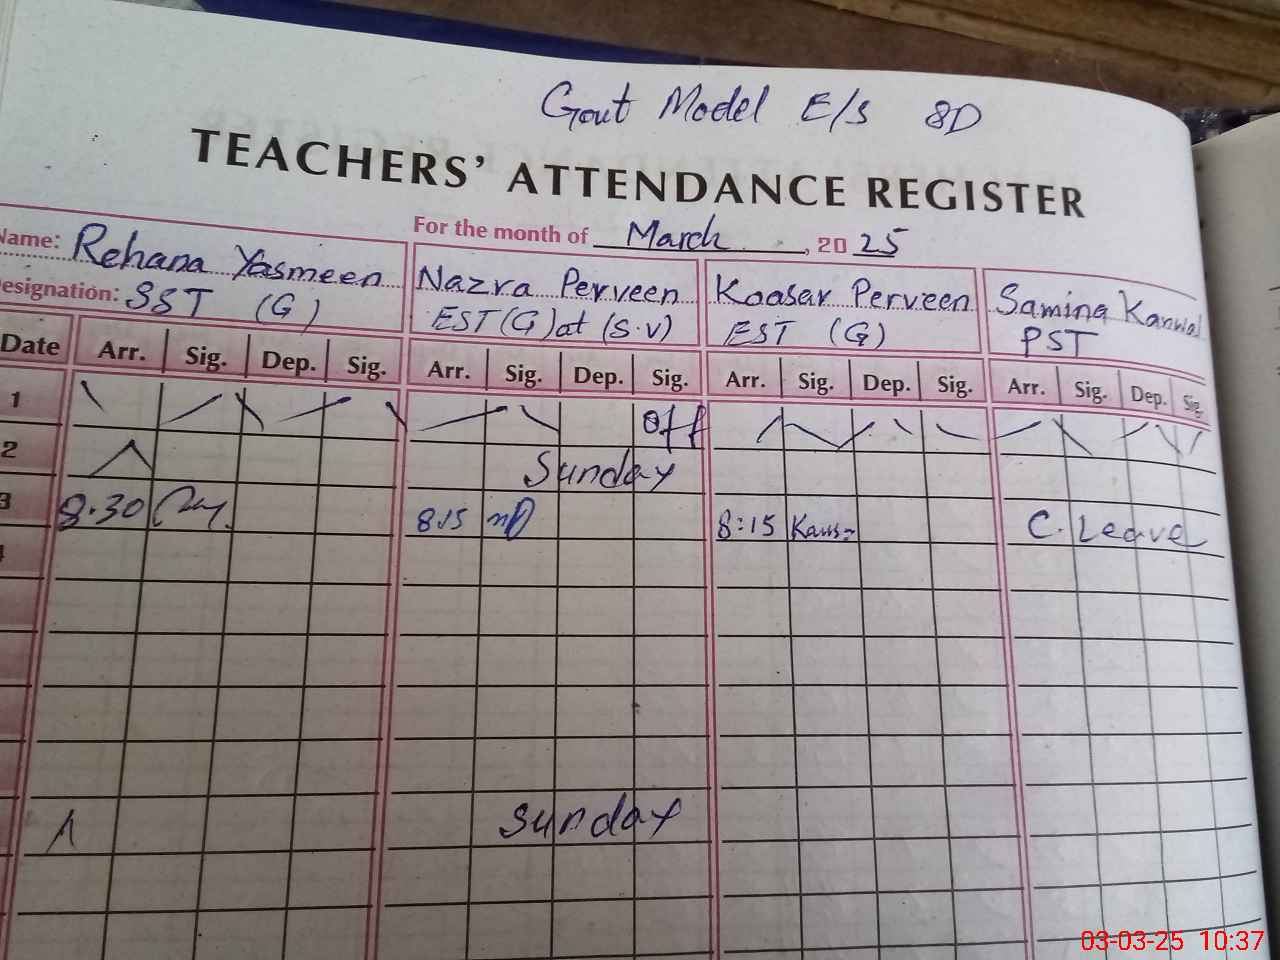 Govt Model E/S 8D
TEACHERS' ATTENDANCE REGISTER
For the month of March, 2025
Name: Rehana Yasmeen Nazra Perveen Koasar Perveen Samina Kanwal
Designation: SST (G) EST(G) at (S.V) EST (G) PST
Date Arr. Sig. Dep. Sig. Arr. Sig. Dep. Sig. Arr. Sig. Dep. Sig. Arr. Sig. Dep. Sig.
1 Off
2 Sunday
3 8.30 8.15 8:15 Kaus C. Leave
Sunday
03-03-25 10:37